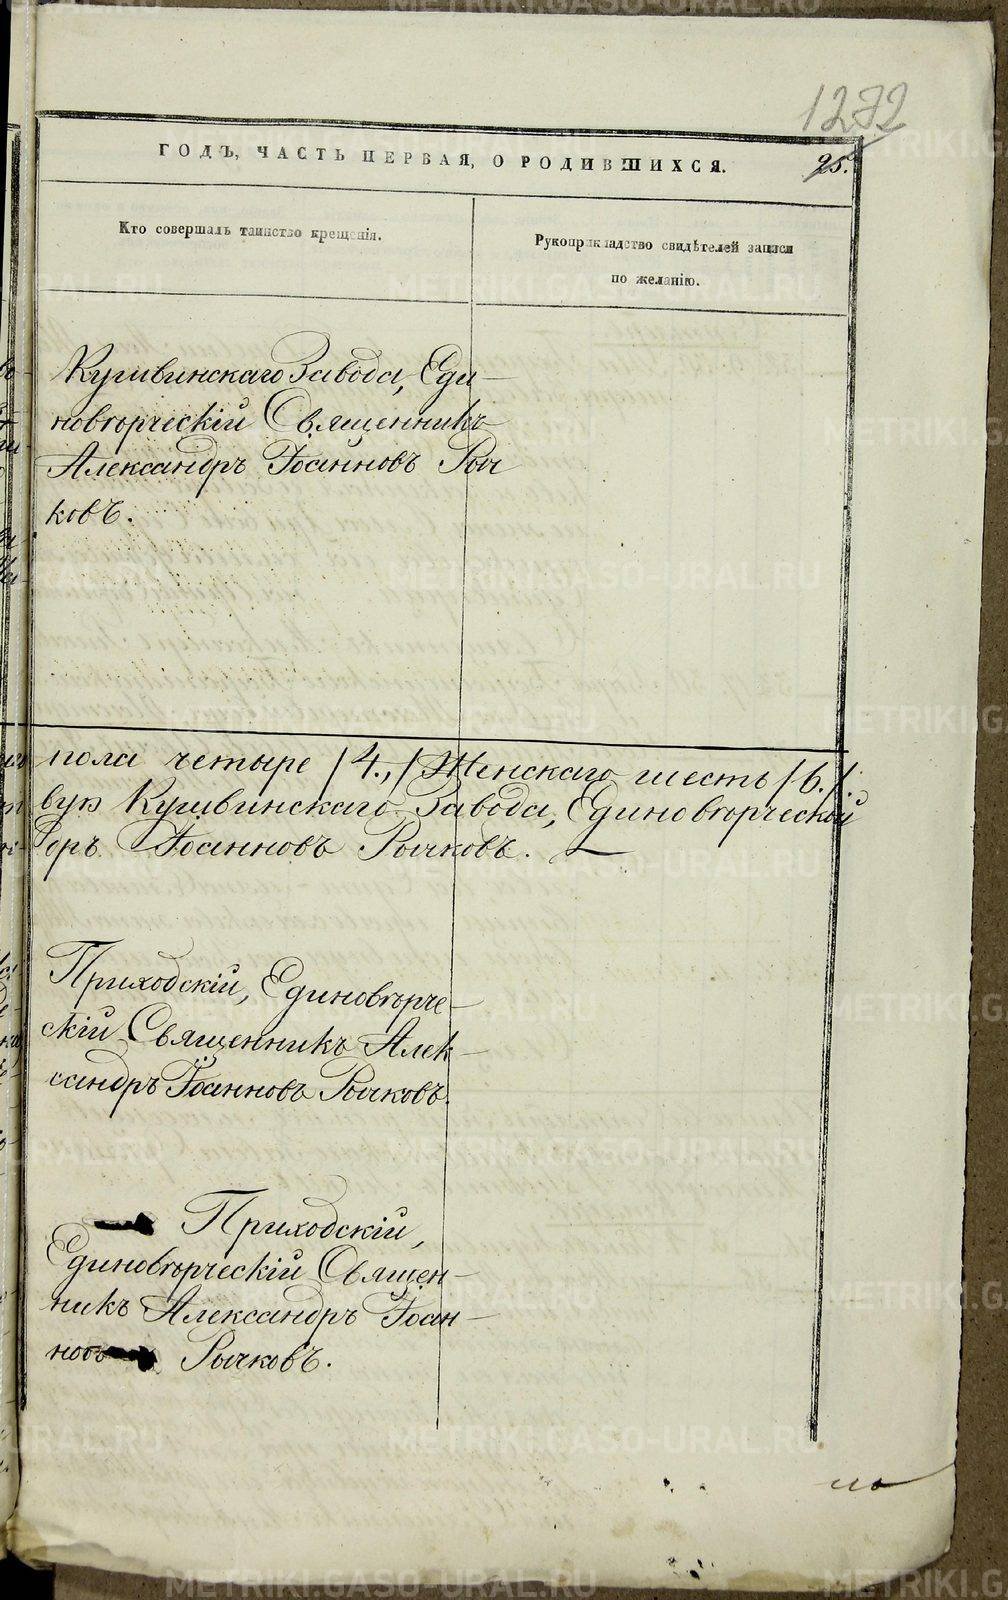 1272
ГОДЪ, ЧАСТЬ ПЕРВАЯ, О РОДИВШИХСЯ.
25.
Кто совершалъ таинство крещенія.
Рукоприкладство свидѣтелей записи
по желанію.
Кушвинскаго Завода, Еди-
новѣрческій Священникъ
Александръ Іоанновъ Рыч
ковъ.
пола четыре /4.,/ Женскаго шесть /6./.
вую Кушвинскаго Завода, Единовѣрческой
Іоанновъ Рычковъ.
Приходскій, Единовѣрче-
скій Священникъ Алек-
сандръ Іоанновъ Рычковъ.
Приходскій,
Единовѣрческій Священ-
никъ Александръ Іоан-
новъ Рычковъ.
METRIKI.GASO-URAL.RU